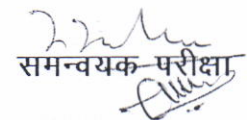 समन्वयक परीक्षा